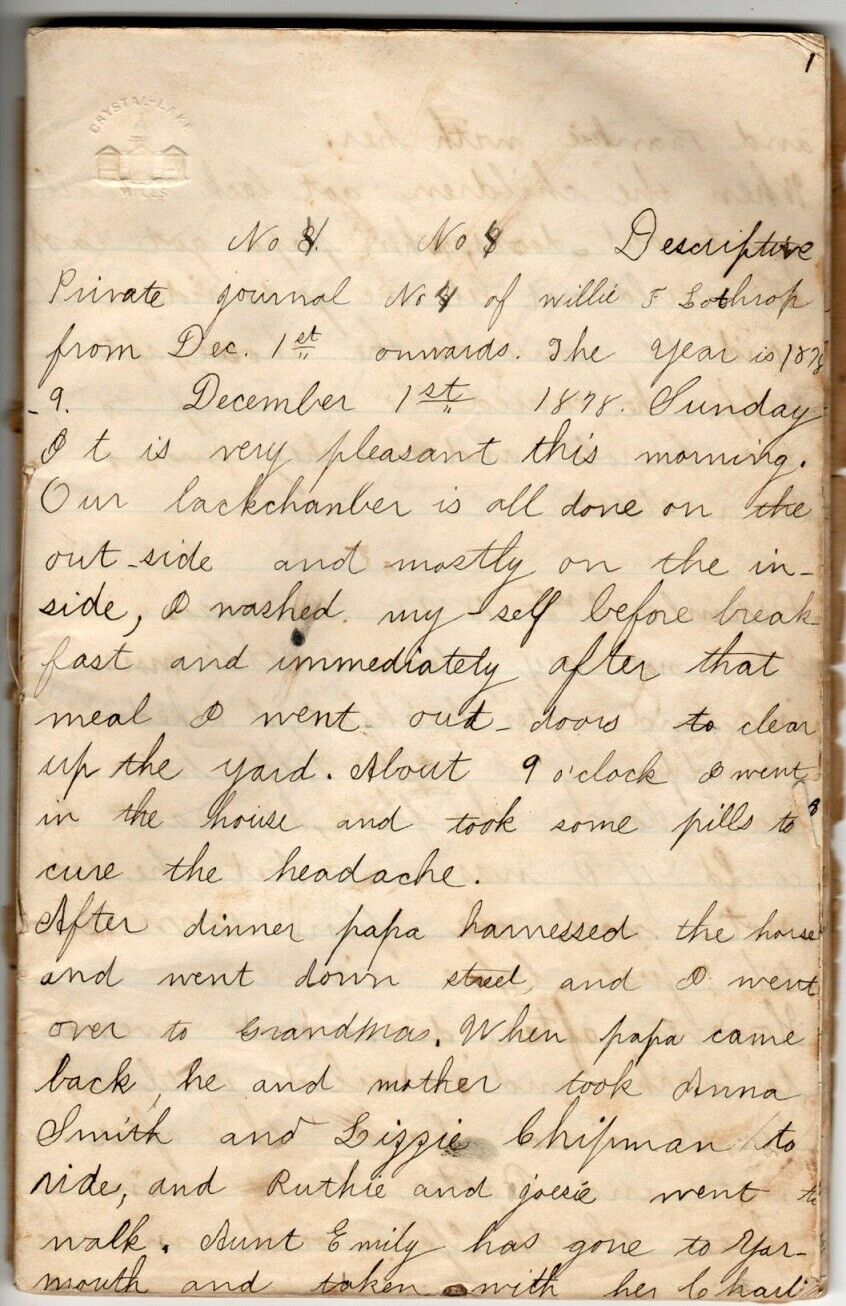 1
CRYSTAL-LAKE
MILLS
No 8. No 8 Descriptive
Private journal No 8 of willie F Lothrop
from Dec. 1st onwards. The Year is 1878
-9. December 1st 1878. Sunday
I t is very pleasant this morning.
Our backchanber is all done on the
out-side and mostly on the in-
side, I washed my-self before break-
fast and immediately after that
meal I went out-doors to clear
up the yard. About 9 o'clock I went
in the house and took some pills to
cure the headache.
After dinner papa harnessed the horse
and went down street, and I went
over to Grandmas. When papa came
back, he and mother took Anna
Smith and Lizzie Chipman to
ride, and Ruthie and joesie went to
walk. Aunt Emily has gone to Yar-
mouth and taken with her Charli